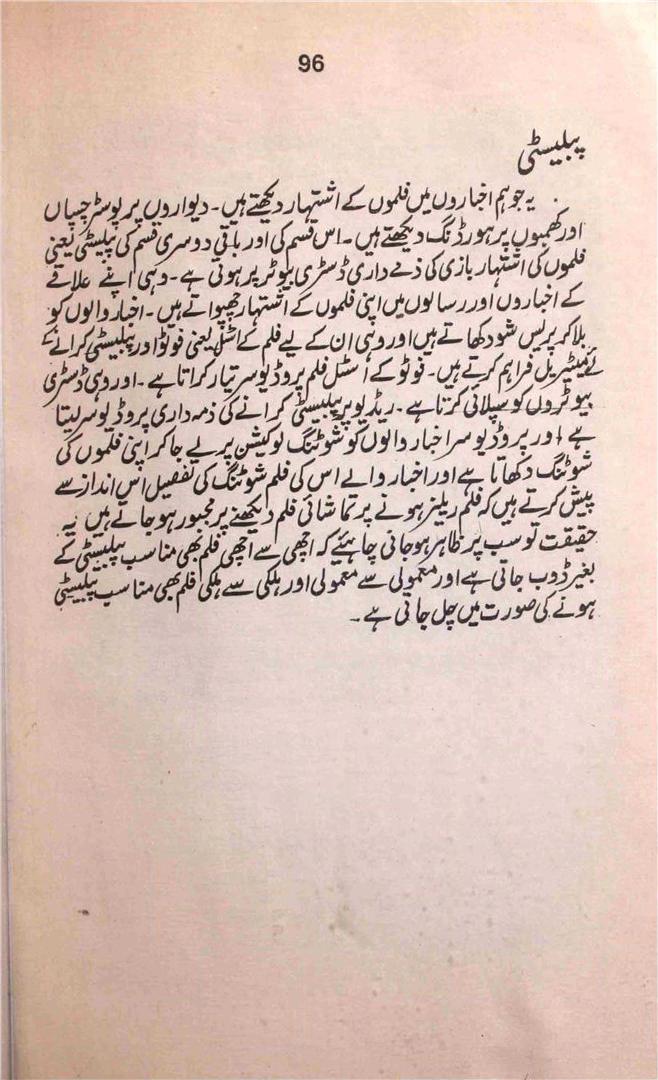 96
پبلیسٹی
یہ جو ہم اخباروں میں فلموں کے اشتہار دیکھتے ہیں۔ دیواروں پر پوسٹر چسپاں
اور کھمبوں پر ہورڈنگ دیکھتے ہیں۔ اس قسم کی اور باقی دوسری قسم کی پبلیسٹی یعنی
فلموں کی اشتہار بازی کی ذمے داری ڈسٹری بیوٹر پر ہوتی ہے۔ وہی اپنے علاقے
کے اخباروں اور رسالوں میں اپنی فلموں کے اشتہار چھپواتے ہیں۔ اخبار والوں کو
بلا کر پریس شو دکھاتے ہیں اور وہی ان کے لیے فلم کے اسٹل یعنی فوٹو اور پبلیسٹی کرانے کے
لئے میٹیریل فراہم کرتے ہیں۔ فوٹو کے اسٹل فلم پروڈیوسر تیار کراتا ہے۔ اور وہی ڈسٹری
بیوٹروں کو سپلائی کرتا ہے۔ ریڈیو پر پبلیسٹی کرانے کی ذمہ داری پروڈیوسر لیتا
ہے اور پروڈیوسر اخبار والوں کو شوٹنگ لوکیشن پر لے جا کر اپنی فلموں کی
شوٹنگ دکھاتا ہے اور اخبار والے اس کی فلم شوٹنگ کی تفصیل اس انداز سے
پیش کرتے ہیں کہ فلم ریلیز ہونے پر تماشائی فلم دیکھنے پر مجبور ہو جاتے ہیں یہ
حقیقت تو سب پر ظاہر ہو جانی چاہئیے کہ اچھی سے اچھی فلم بھی مناسب پبلیسٹی کے
بغیر ڈوب جاتی ہے اور معمولی سے معمولی اور ہلکی سے ہلکی فلم بھی مناسب پبلیسٹی
ہونے کی صورت میں چل جاتی ہے۔